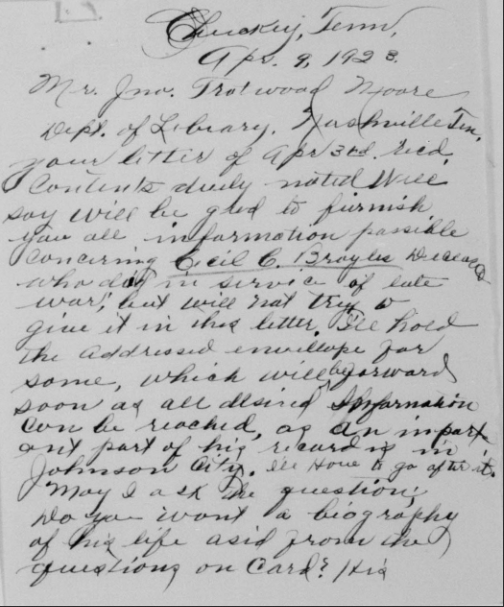 Chuckey, Tenn,
Apr. 9, 1923.
Mr. Jno. Trotwood Moore
Dept. of Library. Nashville Ten,
your letter of Apr 3rd. Recd,
Contents duely noted Will
say will be glad to furnish
you all information possible
concerning Cecil C. Broyles Deceased
who did in service of late
war, but will not try to
give it in this letter. Ile hold
the addressed envellope for
same, which will be forward
soon as all desired Information
Can be reached, as an import
ant part of his record is in
Johnson City. Ile Have to go after it.
May I ask the question,
Do you want a biography
of his life asid from the
questions on Card? His